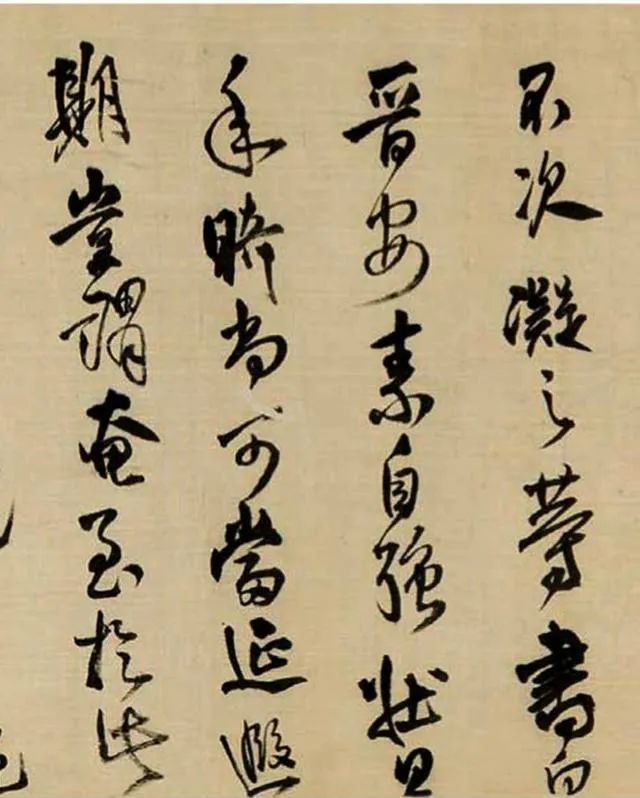 不次凝之等書白
晉安素自強壯且
年時尚可當延遐
期豈謂奄至於此